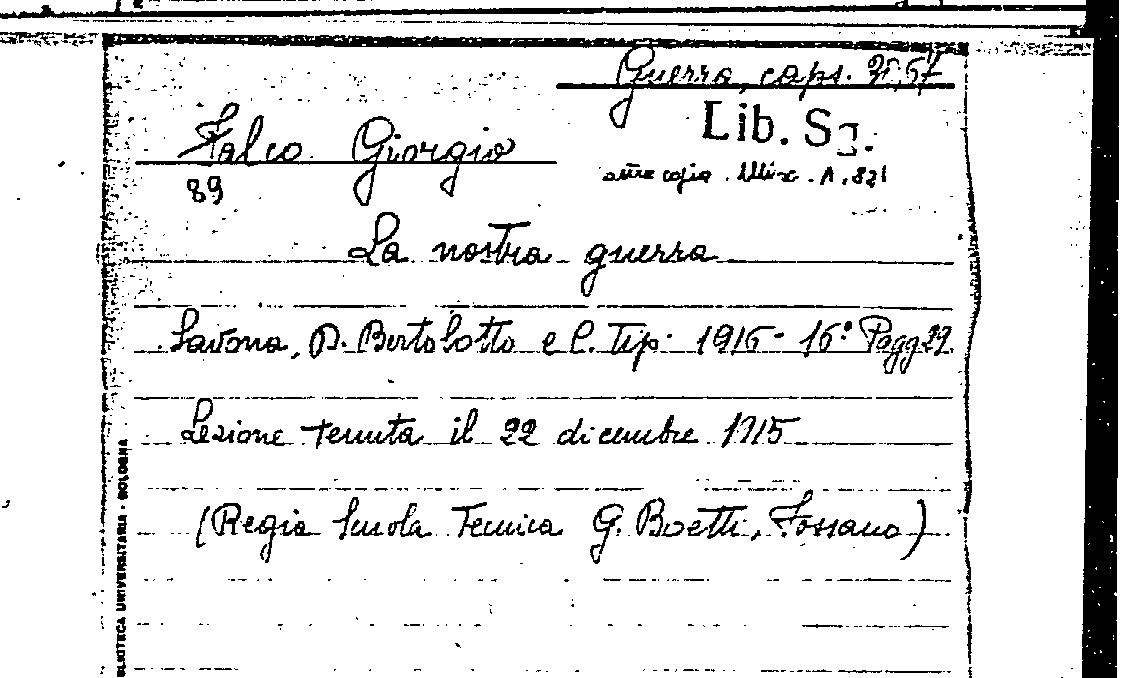 Guerra, caps. 35,67
Falco Giorgio
Lib. Sg.
altra copia. Misc. A. 821
89
La nostra guerra
Savona, D. Bertolotto e C. Tip. 1916 - 16° Pagg 29.
Lezione tenuta il 22 dicembre 1915
(Regia Scuola Tecnica G. Boetti, Fossano)
BLIOTECA UNIVERSITARIA - BOLOGNA